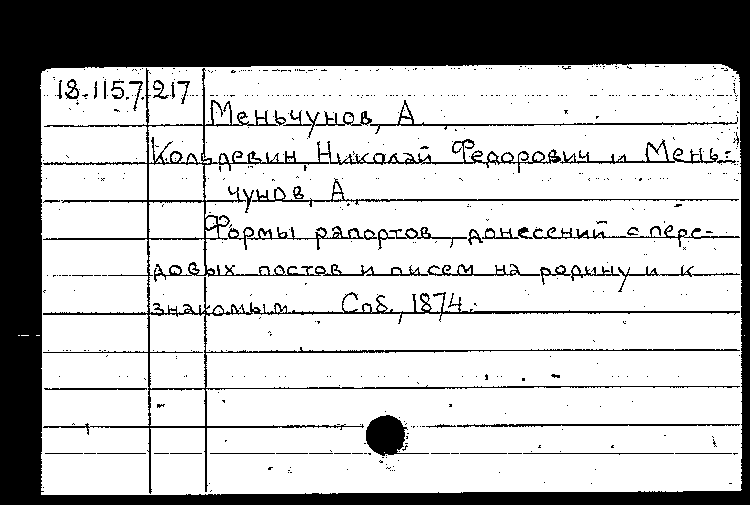 18.115.7.217
Меньчунов, А.
Кольдевин, Николай Федорович и Мень-
чунов, А.
Формы рапортов, донесений с пере-
довых постов и писем на родину и к
знакомым. Спб., 1874.